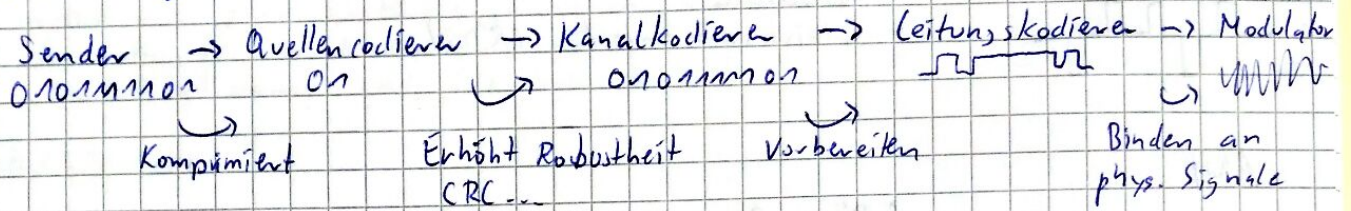 Sender → Quellencodierer → Kanalkodierer → Leitungskodierer → Modulator
0101111101 01 0101111101
Komprimiert Erhöht Robustheit Vorbereiten Binden an
CRC... phys. Signale